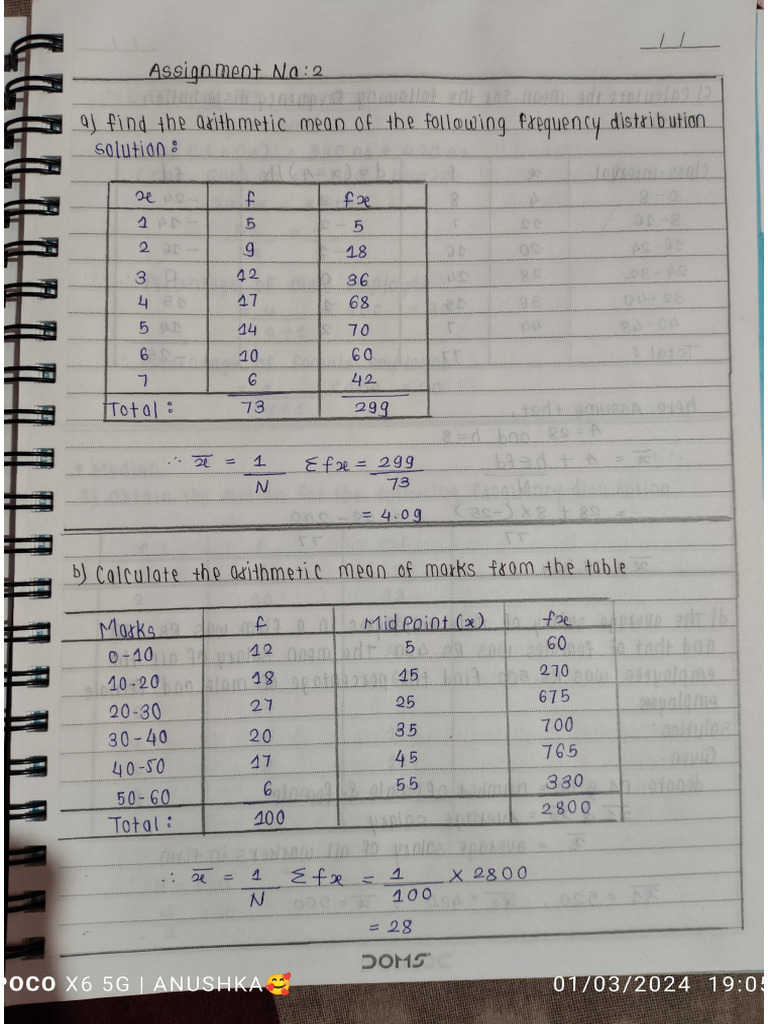 Assignment No:2
a) find the arithmetic mean of the following frequency distribution
solution:
x f fx
1 5 5
2 9 18
3 12 36
4 17 68
5 14 70
6 10 60
7 6 42
Total: 73 299
∴ x̄ = 1/N Σfx = 299/73
= 4.09
b) Calculate the arithmetic mean of marks from the table
Marks f Midpoint (x) fx
0-10 12 5 60
10-20 18 15 270
20-30 27 25 675
30-40 20 35 700
40-50 17 45 765
50-60 6 55 330
Total: 100 2800
∴ x̄ = 1/N Σfx = 1/100 × 2800
= 28
DOMS
POCO X6 5G | ANUSHKA🥰 01/03/2024 19:05